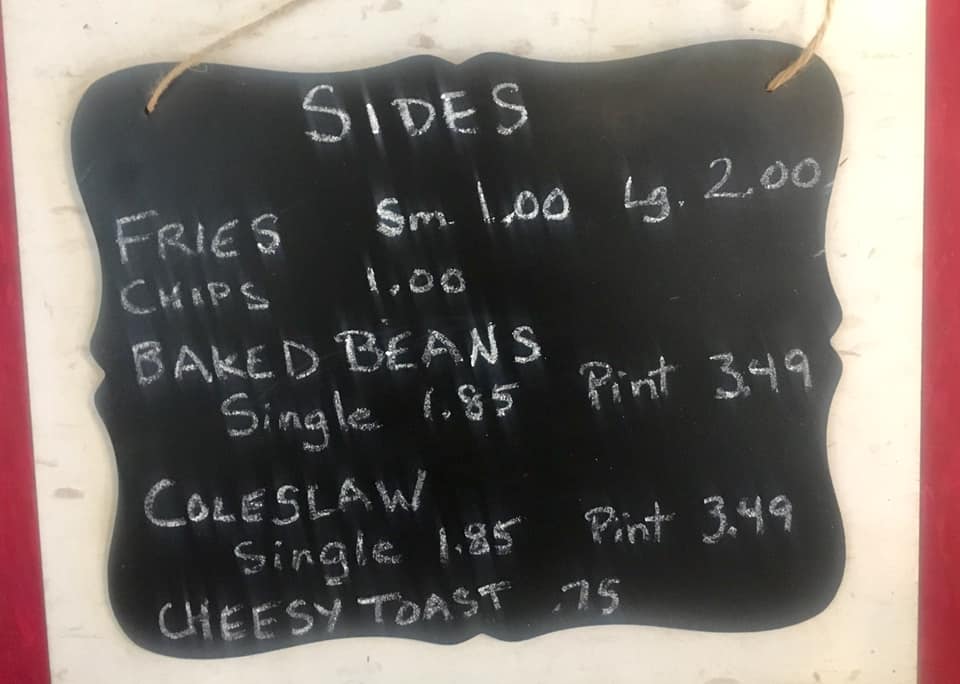 SIDES
FRIES Sm 1.00 Lg. 2.00
CHIPS 1.00
BAKED BEANS
Single 1.85 Pint 3.49
COLESLAW
Single 1.85 Pint 3.49
CHEESY TOAST .75